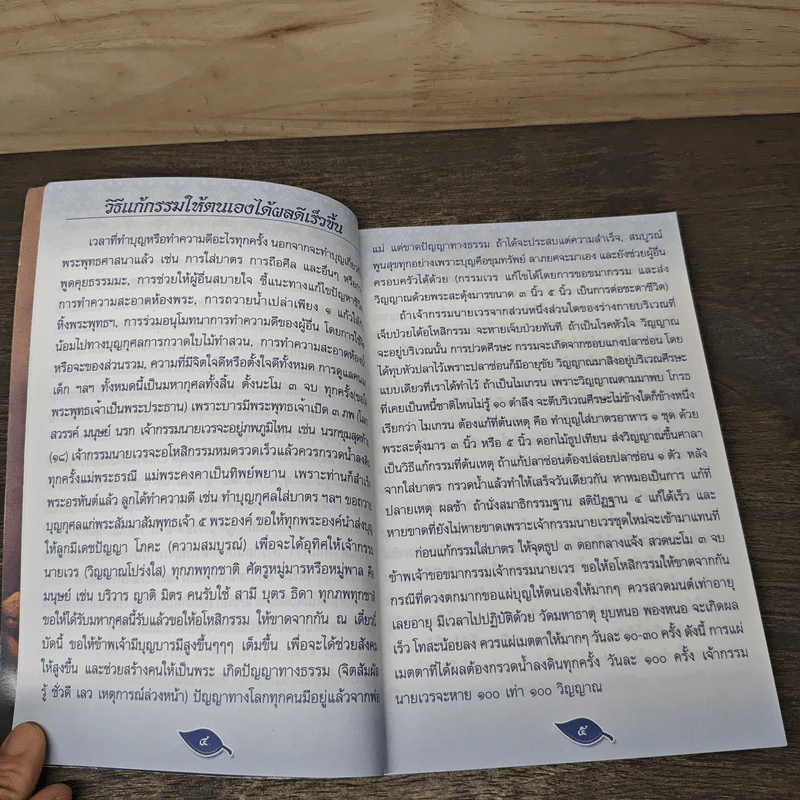 วิธีแก้กรรมให้ตนเองได้ผลดีเร็วขึ้น
เวลาที่ทำบุญหรือทำความดีอะไรทุกครั้ง นอกจากจะทำบุญเกี่ยวกับ
พระพุทธศาสนาแล้ว เช่น การใส่บาตร การถือศีล และอื่นๆ หรือการ
พูดคุยธรรมมะ, การช่วยให้ผู้อื่นสบายใจ ชี้แนะทางแก้ไขปัญหาชีวิต
การทำความสะอาดห้องพระ, การถวายน้ำเปล่าเพียง ๑ แก้วให้
หิ้งพระพุทธฯ, การร่วมอนุโมทนาการทำความดีของผู้อื่น โดยการใช้จิต
น้อมไปทางบุญกุศลการกวาดใบไม้ทำสวน, การทำความสะอาดห้องน้ำ
หรือจะของส่วนรวม, ความที่มีจิตใจดีหรือตั้งใจดีทั้งหมด การดูแล
เด็ก ฯลฯ ทั้งหมดนี้เป็นมหากุศลทั้งสิ้น ตั้งนะโม ๓ จบ ทุกครั้ง(ขอให้
พระพุทธเจ้าเป็นพระประธาน) เพราะบารมีพระพุทธเจ้าเปิด ๓ ภพ (โลก
สวรรค์ มนุษย์ นรก เจ้ากรรมนายเวรจะอยู่ภพภูมิไหน เช่น นรกขุมสุดท้าย
(๑๘) เจ้ากรรมนายเวรจะอโหสิกรรมหมดรวดเร็วแล้วควรกรวดน้ำลงดิน
ทุกครั้งแม่พระธรณี แม่พระคงคาเป็นทิพย์พยาน เพราะท่านก็สำเร็จ
พระอรหันต์แล้ว ลูกได้ทำความดี เช่น ทำบุญกุศลใส่บาตร ฯลฯ ขอถวาย
บุญกุศลแก่พระสัมมาสัมพุทธเจ้า ๕ พระองค์ ขอให้ทุกพระองค์นำส่งบุญ
ให้ลูกมีเดชปัญญา โภคะ (ความสมบูรณ์) เพื่อจะได้อุทิศให้เจ้ากรรม
นายเวร (วิญญาณโปร่งใส) ทุกภพทุกชาติ ศัตรูหมู่มารหรือหมู่พาล คือ
มนุษย์ เช่น บริวาร ญาติ มิตร คนรับใช้ สามี บุตร ธิดา ทุกภพทุกชาติ
ขอให้ได้รับมหากุศลนี้รับแล้วขอให้อโหสิกรรม ให้ขาดจากกัน ณ เดี๋ยวนี้
บัดนี้ ขอให้ข้าพเจ้ามีบุญบารมีสูงขึ้นๆๆๆ เต็มขึ้น เพื่อจะได้ช่วยสังคม
ให้สูงขึ้น และช่วยสร้างคนให้เป็นพระ เกิดปัญญาทางธรรม (จิตสัมผัส
รู้ ชั่วดี เลว เหตุการณ์ล่วงหน้า) ปัญญาทางโลกทุกคนมีอยู่แล้วจากพ่อ
๔
แม่ แต่ขาดปัญญาทางธรรม ถ้าได้จะประสบแต่ความสำเร็จ, สมบูรณ์
พูนสุขทุกอย่างเพราะบุญคือขุมทรัพย์ ลาภยศจะมาเอง และยังช่วยผู้อื่น
ครอบครัวได้ด้วย (กรรมเวร แก้ไขได้โดยการขอขมากรรม และส่ง
วิญญาณด้วยพระสะดุ้งมารขนาด ๓ นิ้ว ๕ นิ้ว เป็นการต่อชะตาชีวิต)
ถ้าเจ้ากรรมนายเวรจากส่วนหนึ่งส่วนใดของร่างกายบริเวณที่
เจ็บป่วยได้อโหสิกรรม จะหายเจ็บป่วยทันที ถ้าเป็นโรคหัวใจ วิญญาณ
จะอยู่บริเวณนั้น การปวดศีรษะ กรรมจะเกิดจากชอบแกงปลาช่อน โดย
ได้ทุบหัวปลาไว้เพราะปลาช่อนก็มีอายุขัย วิญญาณมาสิงอยู่บริเวณศีรษะ
แบบเดียวที่เราได้ทำไว้ ถ้าเป็นไมเกรน เพราะวิญญาณตามมาพบ โกรธ
ที่เคยเป็นหนี้ชาติไหนไม่รู้ ๑๐ ตำลึง จะตีบริเวณศีรษะไม่ข้างใดก็ข้างหนึ่ง
เรียกว่า ไมเกรน ต้องแก้ที่ต้นเหตุ คือ ทำบุญใส่บาตรอาหาร ๑ ชุด ด้วย
พระสะดุ้งมาร ๓ นิ้ว หรือ ๕ นิ้ว ดอกไม้ธูปเทียน ส่งวิญญาณขึ้นศาลา
เป็นวิธีแก้กรรมที่ต้นเหตุ ถ้าแก้ปลาช่อนต้องปล่อยปลาช่อน ๑ ตัว หลัง
จากใส่บาตร กรวดน้ำแล้วทำให้เสร็จวันเดียวกัน หาหมอเป็นการ แก้ที่
ปลายเหตุ ผลช้า ถ้านั่งสมาธิกรรมฐาน สติปัฏฐาน ๔ แก้ได้เร็ว และ
หายขาดที่ยังไม่หายขาดเพราะเจ้ากรรมนายเวรชุดใหม่จะเข้ามาแทนที่
ก่อนแก้กรรมใส่บาตร ให้จุดธูป ๓ ดอกกลางแจ้ง สวดนะโม ๓ จบ
ข้าพเจ้าขอขมากรรมเจ้ากรรมนายเวร ขอให้อโหสิกรรมให้ขาดจากกัน
กรณีที่ดวงตกมากขอแผ่บุญให้ตนเองให้มากๆ ควรสวดมนต์เท่าอายุ
เลยอายุ มีเวลาไปปฏิบัติด้วย วัดมหาธาตุ ยุบหนอ พองหนอ จะเกิดผล
เร็ว โทสะน้อยลง ควรแผ่เมตตาให้มากๆ วันละ ๑๐-๓๐ ครั้ง ดังนี้ การแผ่
เมตตาที่ได้ผลต้องกรวดน้ำลงดินทุกครั้ง วันละ ๑๐๐ ครั้ง เจ้ากรรม
นายเวรจะหาย ๑๐๐ เท่า ๑๐๐ วิญญาณ
๕